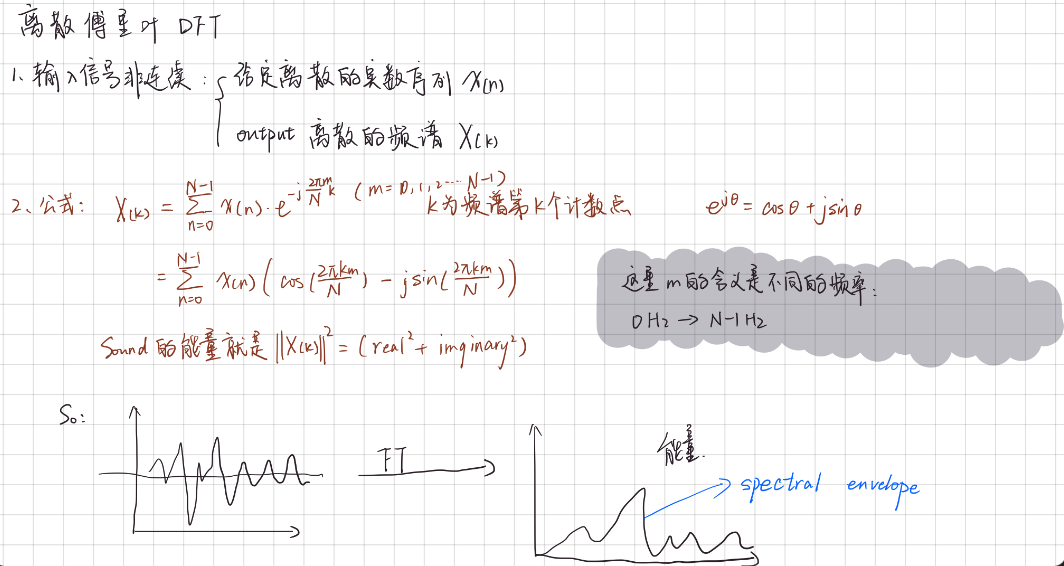 离散傅里叶 DFT
1、输入信号非连续：{ 给定离散的实数序列 x(n)
output 离散的频谱 X(k)
2、公式： X(k) = \sum_{n=0}^{N-1} x(n)·e^{-j\frac{2πm}{N}k} (m=0,1,2…N-1)
k为频谱第k个计数点
e^{jθ} = cosθ + jsinθ
= \sum_{n=0}^{N-1} x(n) ( cos(\frac{2πkm}{N}) - jsin(\frac{2πkm}{N}) )
这里 m的含义是不同的频率：
0Hz → N-1Hz
Sound 的能量就是 ||X(k)||² = (real² + imginary²)
So:
FT
能量.
spectral envelope